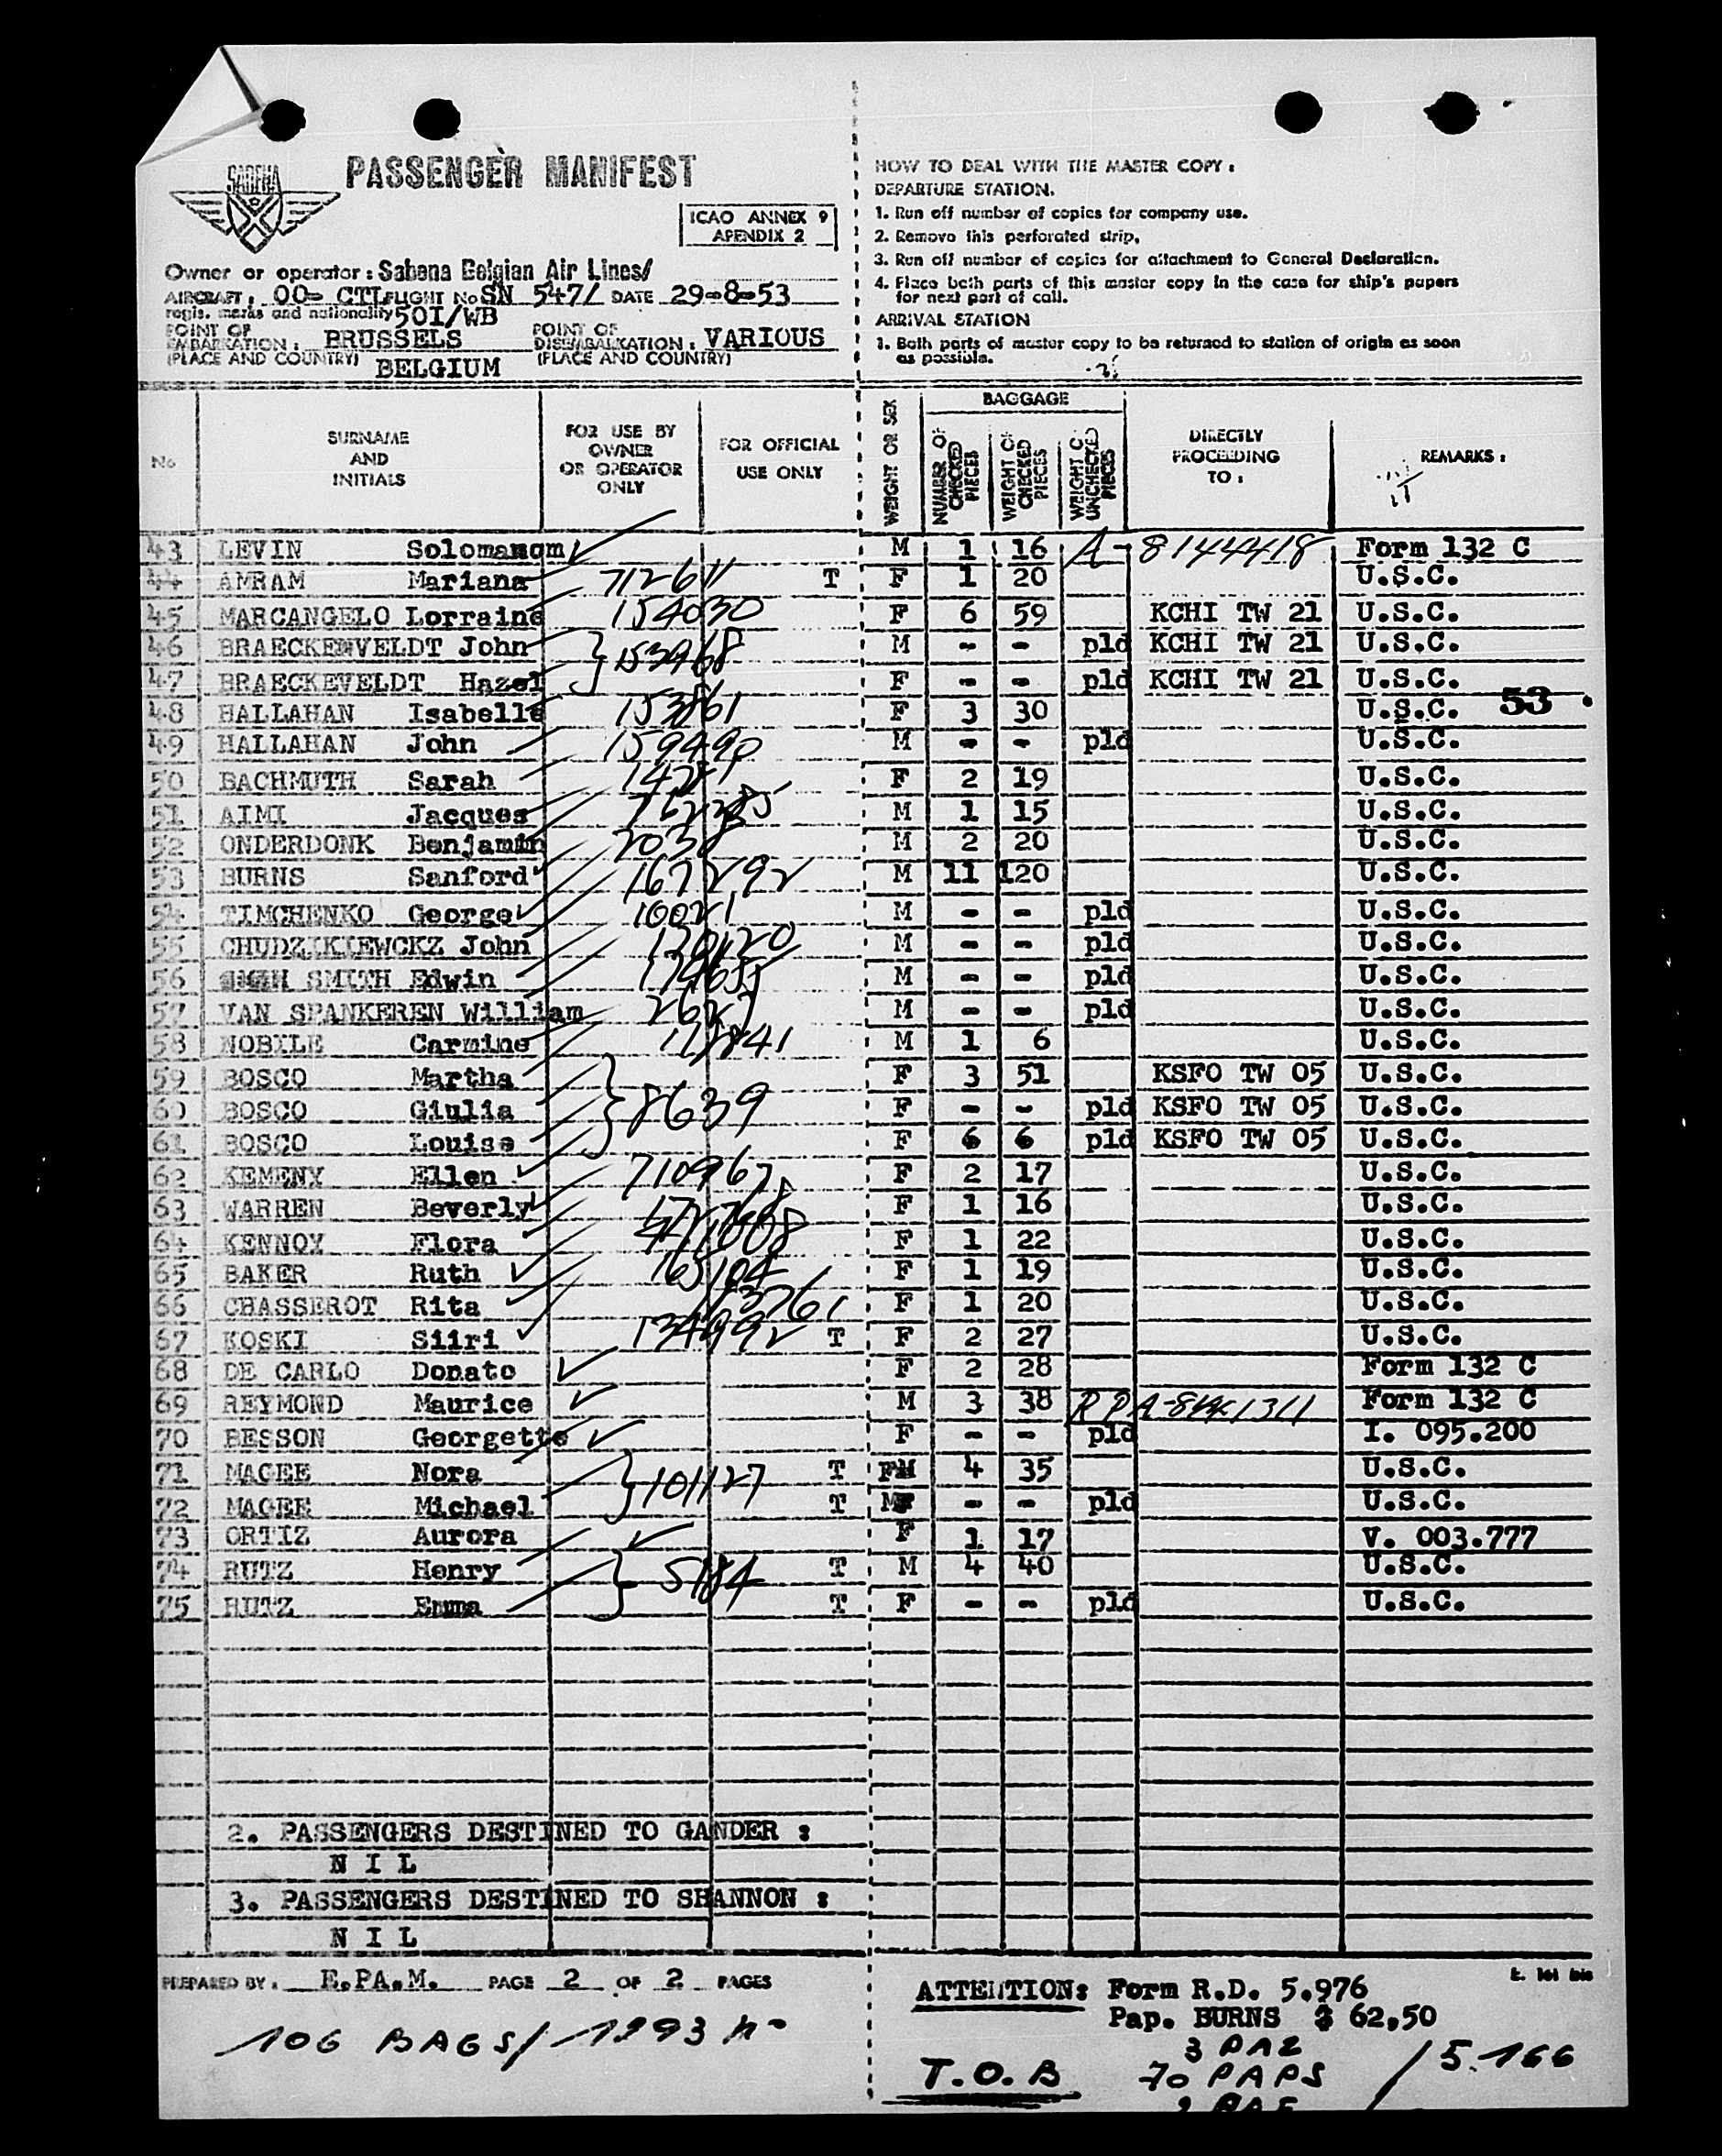 SABENA
PASSENGER MANIFEST
ICAO ANNEX 9
APENDIX 2
Owner or operator : Sabena Belgian Air Lines/
AIRCRAFT : OO- CTL FLIGHT No SN 547/ DATE 29-8-53
regis. marks and nationality 501/WB
POINT OF EMBARKATION : BRUSSELS POINT OF DISEMBARKATION : VARIOUS
(PLACE AND COUNTRY) BELGIUM (PLACE AND COUNTRY)
HOW TO DEAL WITH THE MASTER COPY :
DEPARTURE STATION.
1. Run off number of copies for company use.
2. Remove this perforated strip,
3. Run off number of copies for attachment to General Declaration.
4. Place both parts of this master copy in the case for ship's papers
for next port of call.
ARRIVAL STATION
1. Both parts of master copy to be returned to station of origin as soon
as possible.
No SURNAME AND INITIALS FOR USE BY OWNER OR OPERATOR ONLY FOR OFFICIAL USE ONLY WEIGHT OR SEX BAGGAGE NUMBER OF CHECKED PIECES WEIGHT OF CHECKED PIECES WEIGHT OF UNCHECKED PIECES DIRECTLY PROCEEDING TO : REMARKS :
43 LEVIN Solomanom M 1 16 A - 8144418 Form 132 C
44 AMRAM Mariana 712611 T F 1 20 U.S.C.
45 MARCANGELO Lorraine 154030 F 6 59 KCHI TW 21 U.S.C.
46 BRAECKENVELDT John 153968 M - - pld KCHI TW 21 U.S.C.
47 BRAECKEVELDT Hazel F - - pld KCHI TW 21 U.S.C.
48 HALLAHAN Isabelle 153861 F 3 30 U.S.C. 53
49 HALLAHAN John 159490 M - - pld U.S.C.
50 BACHMUTH Sarah F 2 19 U.S.C.
51 AIMI Jacques M 1 15 U.S.C.
52 ONDERDONK Benjamin M 2 20 U.S.C.
53 BURNS Sanford 167292 M 11 120 U.S.C.
54 TIMCHENKO George 10021 M - - pld U.S.C.
55 CHUDZIKIEWCKZ John M - - pld U.S.C.
56 SMITH Edwin M - - pld U.S.C.
57 VAN SPANKEREN William M - - pld U.S.C.
58 NOBILE Carmine M 1 6 U.S.C.
59 BOSCO Martha F 3 51 KSFO TW 05 U.S.C.
60 BOSCO Giulia 8639 F - - pld KSFO TW 05 U.S.C.
61 BOSCO Louise F 6 6 pld KSFO TW 05 U.S.C.
62 KEMENY Ellen 710967 F 2 17 U.S.C.
63 WARREN Beverly F 1 16 U.S.C.
64 KENNOY Flora F 1 22 U.S.C.
65 BAKER Ruth 165104 F 1 19 U.S.C.
66 CHASSEROT Rita F 1 20 U.S.C.
67 KOSKI Siiri 134992 T F 2 27 U.S.C.
68 DE CARLO Donato F 2 28 Form 132 C
69 REYMOND Maurice M 3 38 Form 132 C
70 BESSON Georgette F - - pld I. 095.200
71 MAGEE Nora T F 4 35 U.S.C.
72 MAGEE Michael 101127 T M - - pld U.S.C.
73 ORTIZ Aurora F 1 17 V. 003.777
74 RUTZ Henry 5184 T M 4 40 U.S.C.
75 RUTZ Emma T F - - pld U.S.C.
2. PASSENGERS DESTINED TO GANDER :
N I L
3. PASSENGERS DESTINED TO SHANNON :
N I L
PREPARED BY : E.PA.M. PAGE 2 OF 2 PAGES
ATTENTION: Form R.D. 5.976
Pap. BURNS $ 62,50
106 BAGS/
T.O.B
70 PAPS
/ 5.166